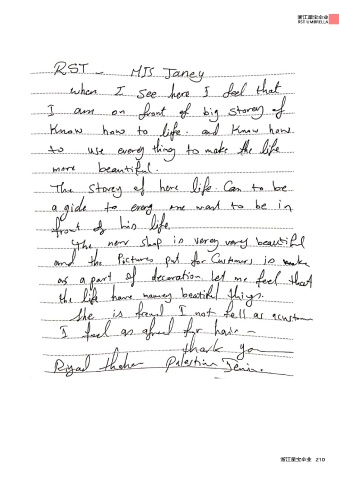 浙江星宝伞业
RST UMBRELLA
RST - MIS Janey
when I see here I feel that
I am on front of big storey of
Know how to life. and Know how
to use every thing to make the life
more beautiful.
The storey of here life. Can to be
a gide to every one want to be in
front of his life.
The new shop is verey very beautiful
and the Pictures put for Customers is
as a part of decoration let me feel that
the life have many beatiful things.
She is I not fell as
I feel as for
thank you
Palestine Jenin.
浙江星宝伞业 210